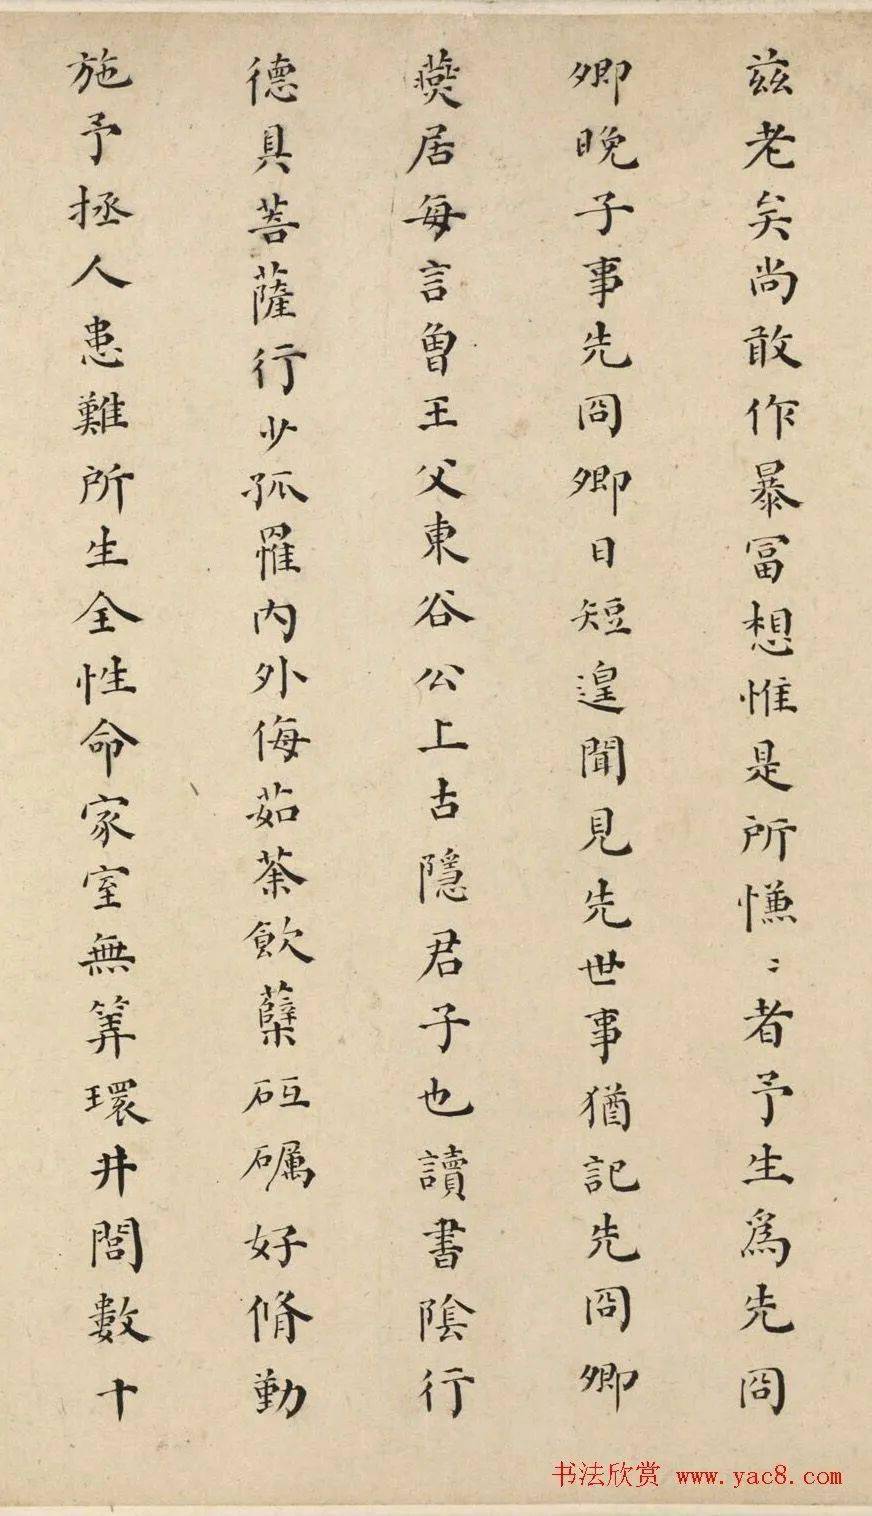 茲老矣尚敢作暴冨想惟是所慊〻者予生爲先冏
卿晚子事先冏卿日短遑聞見先世事猶記先冏卿
燕居每言曾王父東谷公上古隱君子也讀書陰行
德具菩薩行少孤罹内外侮茹荼飲蘖砥礪好脩勤
施予拯人患難所生全性命家室無筭環井閭數十
书法欣赏 www.yac8.com